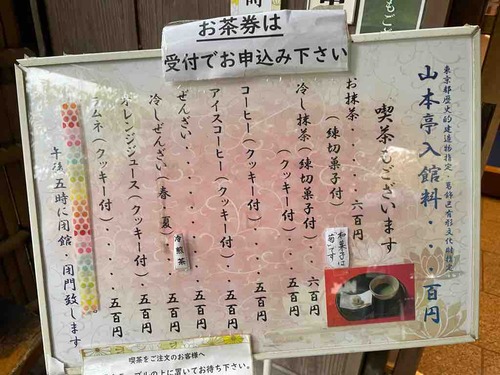 お茶券は
受付でお申込み下さい
東京都歴史的建造物指定・葛飾区有形文化財指定
山本亭入館料・・・百円
喫茶もございます
お抹茶・・・・・・六百円
(練切菓子付)
和菓子は
菊です
冷し抹茶(練切菓子付)・・六百円
(クッキー付)・・五百円
コーヒー(クッキー付)・・・五百円
アイスコーヒー(クッキー付)・・五百円
ぜんざい・・・・・・五百円
冷煎茶
冷しぜんざい・春・夏・・・五百円
オレンジジュース(クッキー付)・・五百円
ラムネ(クッキー付)・・・・五百円
午後五時に閉館・閉門致します
喫茶をご注文のお客様へ
の上に置いてお待ち下さい。